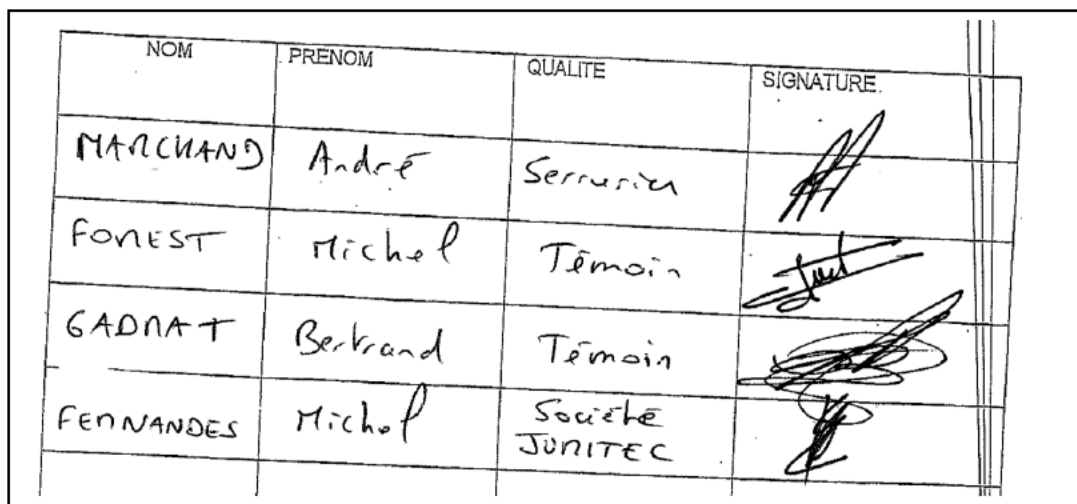 NOM PRENOM QUALITE SIGNATURE.
MARCHAND André Serrurier
FOREST Michel Témoin
GADRAT Bertrand Témoin
FERNANDES Michel Société
JURITEC